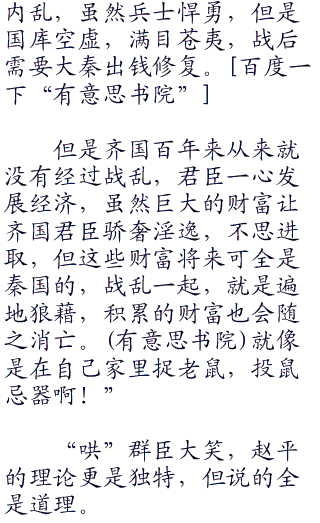 内乱，虽然兵士悍勇，但是
国库空虚，满目苍夷，战后
需要大秦出钱修复。[百度一
下“有意思书院”]
但是齐国百年来从来就
没有经过战乱，君臣一心发
展经济，虽然巨大的财富让
齐国君臣骄奢淫逸，不思进
取，但这些财富将来可全是
秦国的，战乱一起，就是遍
地狼藉，积累的财富也会随
之消亡。(有意思书院)就像
是在自己家里捉老鼠，投鼠
忌器啊！”
“哄”群臣大笑，赵平
的理论更是独特，但说的全
是道理。